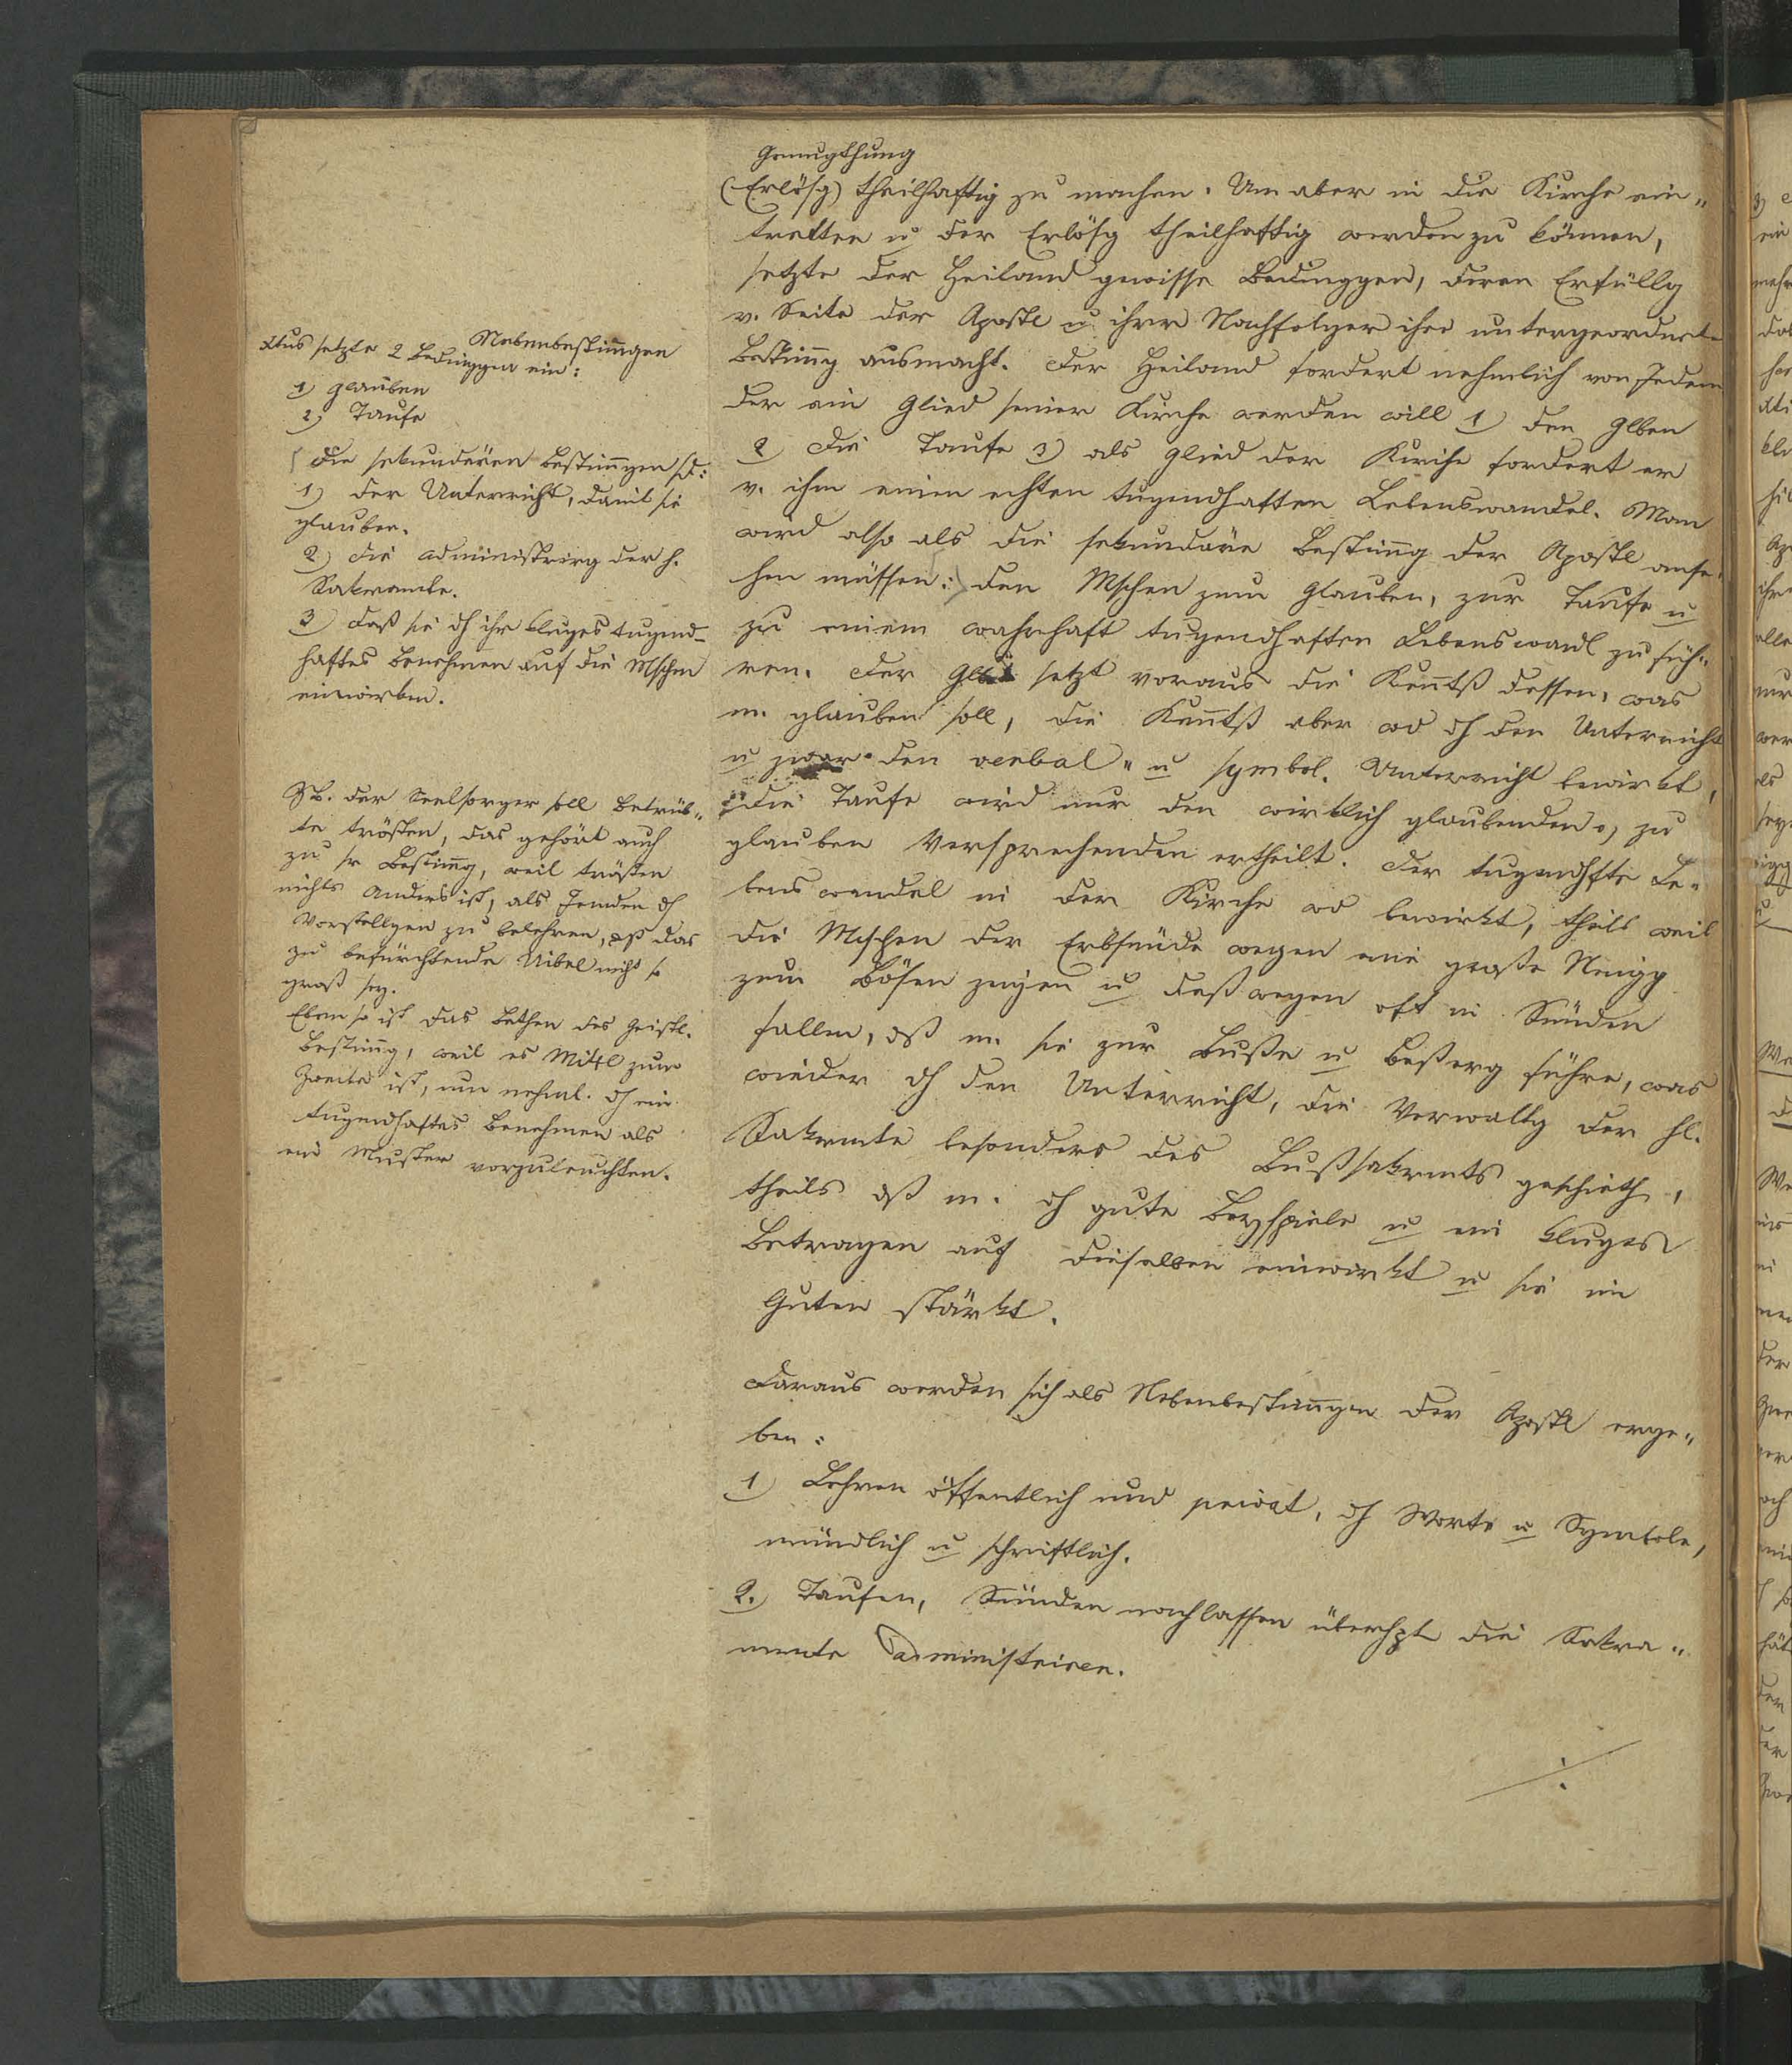 Genugthung
(Erlösg) theilhaftig zu machen. Um aber in die Kirche ein„
tretten u der Erlösg theilhaftig werden zu können,
setzte der Heiland gewisse Bedinggen, deren Erfüllg
v. Seite der Apostl u ihrer Nachfolger ihre untergeordnete
Bestimg ausmacht. Der Heiland fordert nehmlich von Jedem
der ein Glied seiner Kirche werden will 1) den Glben
2 die Taufe 3) als Glied der Kirche fordert er
v. ihm einen echten tugendhaften Lebenswandel. Man
wird also als die sekundäre Bestimg der Apostl anse„
hen müssen: den Mschen zum Glauben, zur Taufe u
zu einem wahrhaft tugendhaften Lebenswandl zu füh„
ren. Der setzt voraus die Kentß dessen, was
m. glauben soll, die Kentß aber wd dh den Unterricht
u zwar den verbal„ u symbol. Unterricht bewirkt,
die Taufe wird nur den wirklich glaubenden, zu
glauben Versprechenden ertheilt. Der tugendhfte Le„
benswandel in der Kirche wd bewirkt, theils weil
die Mschen der Erbsünde wegen eine große Neigg
zum Bösen zeigen u deßwegen oft in Sünden
fallen, dß m. sie zur Buße u Beßerg führe, was
wieder dh den Unterricht, die Verwaltg der hl.
Sakrmte besonders des Bußsakrmts geschieth,
theils dß m. dh gute Beyspiele u ein kluges
Betragen auf dieselben einwirkt u sie im
Guten stärkt.
Daraus werden sich als Nebenbestimgen der Apostl erge„
ben:
1) Lehren öffentlich und privat, dh Worte u Symbole,
mündlich u schriftlich.
2.) Taufen, Sünden nachlassen überhpt die Sakra„
mente administriren.
÷
Nebenbestimgen
Xtus setzte 2 Bedinggen ein:
1) Glauben
2) Taufe
Die sekundären Bestimgen sd:
1) der Unterricht, damit sie
glauben.
2) die Administrirg der h.
Sakramte.
3) daß sie dh ihr kluges tugend-
haftes Benehmen auf die Mschen
einwirken.
NB. der Seelsorger soll Betrüb„
te trösten, das gehört auch
zu sr Bestimg, weil trösten
nichts Anders ist, als Jemden dh
Vorstellgen zu belehren, dß das
zu befürchtende Uibel nicht so
groß sey.
Eben so ist das Bethen des Geistl.
Bestimg, weil es Mittl zum
Zweite ist, nun nehml. dh ein
tugendhaftes Benehmen als
ein Muster vorzuleuchten.